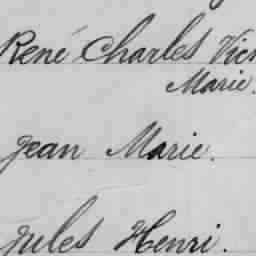 René Charles Vic
Marie.
Jean Marie.
Jules Henri.